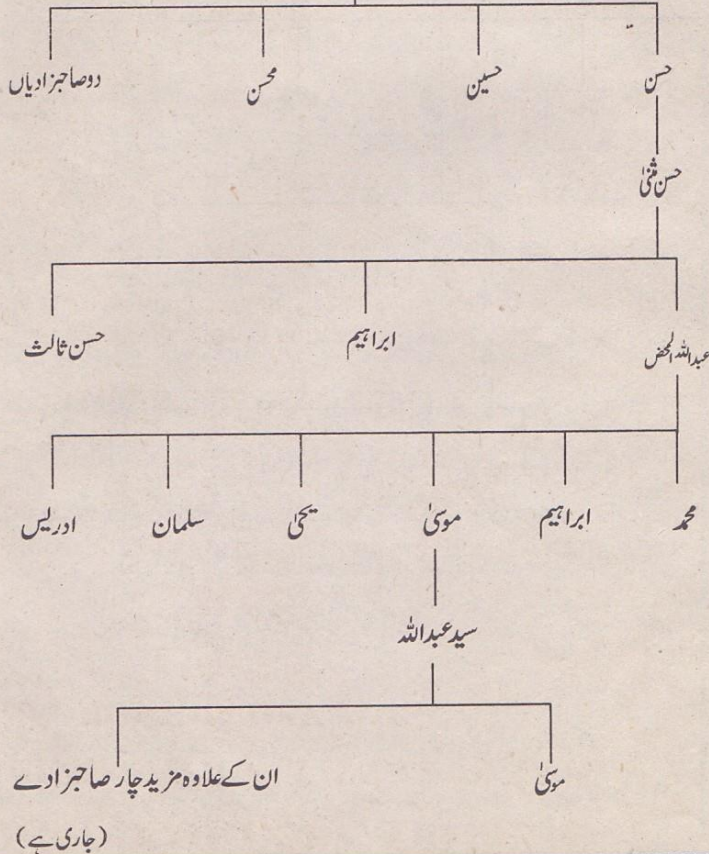 حسن حسین محسن دو صاحبزادیاں
حسن مثنیٰ
عبداللہ المحض ابراہیم حسن ثالث
محمد ابراہیم موسیٰ یحییٰ سلمان ادریس
سید عبداللہ
موسیٰ ان کے علاوہ مزید چار صاحبزادے
(جاری ہے)